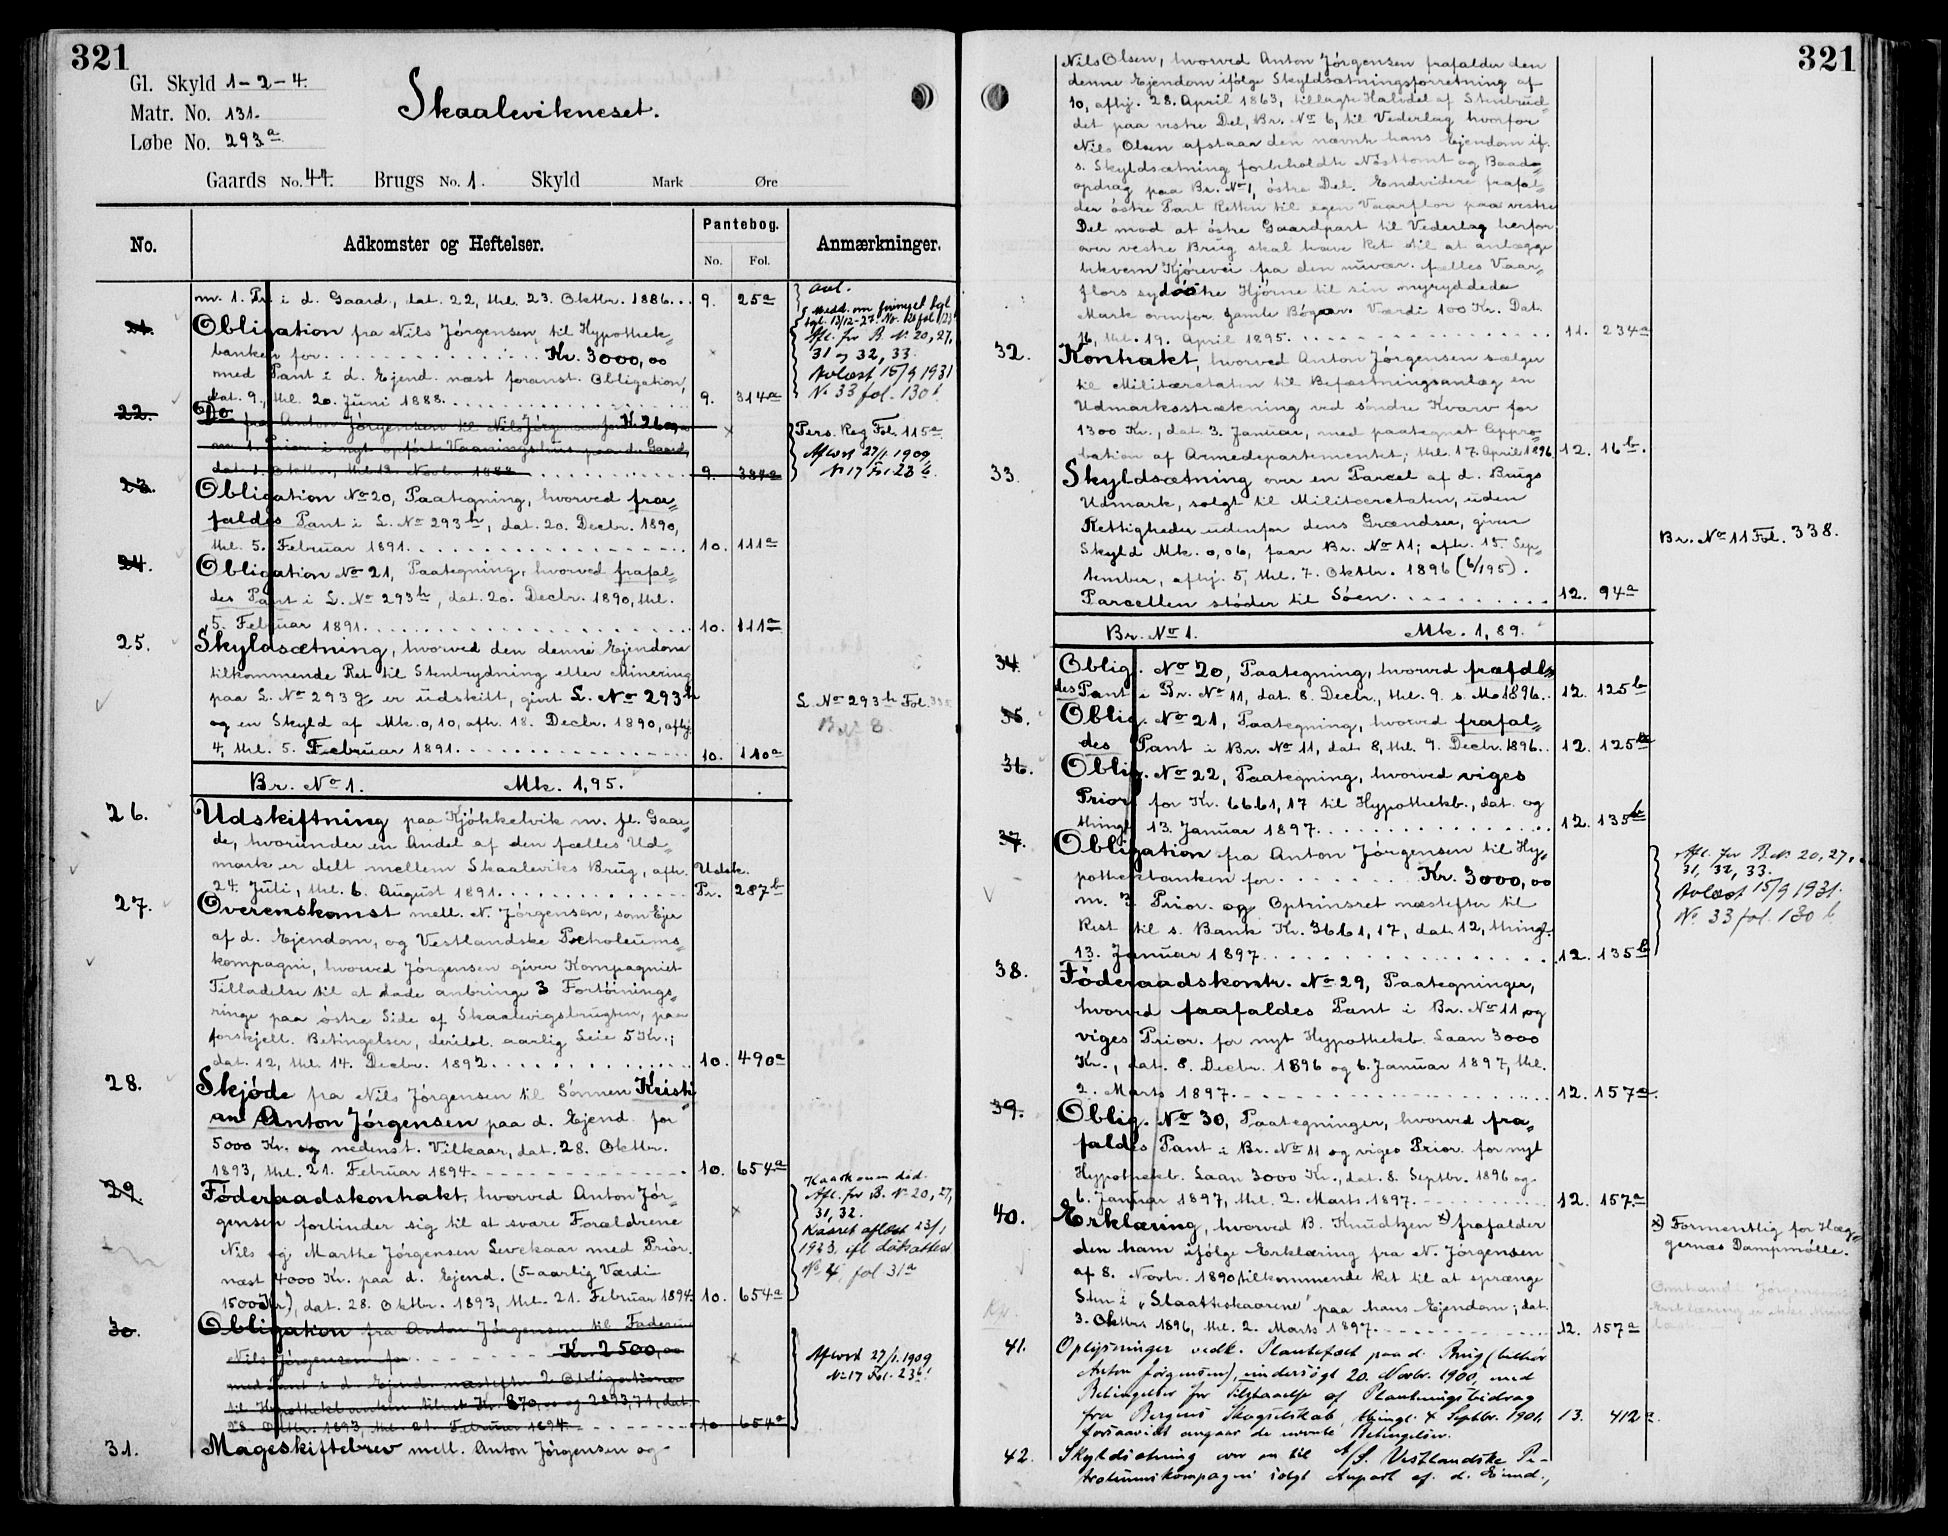 321
Gl. Skyld 1-2-4.
Matr. No. 131.
Løbe No. 293a
Skaalevikneset.
Gaards No. 44. Brugs No. 1. Skyld Mark Øre
No. Adkomster og Heftelser. Pantebog. No. Fol. Anmærkninger.
m. 1. Pr. i d. Gaard, dat. 22, thl. 23. Oktbr. 1886... 9. 25a
21. Obligation fra Nils Jörgensen, til Hypothek-
banken for........ Kr. 3000,00
med Pant i d. Ejend. næst foranst. Obligation,
dat. 9., thl. 20. Juni 1888........ 9. 314a
Afl. for B. No. 20, 27,
31 og 32, 33.
Avlæst 15/9 1931
No 33 fol. 130b
22. Do fra Anton Jörgensen til Nils Jörgensen for Kr. 2600,00
om 1. Prior. i nyt opfört Vaaningshus paa d. Gaard,
dat. 1. Oktbr., thl. 13. Novbr. 1888........ 9. 384a
Pers. Reg Fol. 115a
Aflæst 27/1 1909
No 17 Fol. 23b.
23. Obligation No 20, Paategning, hvorved fra-
faldes Pant i L. No 293h, dat. 20. Decbr. 1890,
thl. 5. Februar 1891........ 10. 111a
24. Obligation No 21, Paategning, hvorved frafal-
des Pant i L. No 293h, dat. 20. Decbr. 1890, thl.
5. Februar 1891........ 10. 111a
25. Skyldsætning, hvorved den denne Ejendom
tilkommende Ret til Stenbrydning eller Minering
paa L. No 293g er udskilt, givt L. No 293h
og en Skyld af Mk. 0,10, afh. 18. Decbr. 1890, afhj.
4, thl. 5. Februar 1891........ 10. 110a
L. No 293h Fol. 335
Br. 8
Br. No 1. Mk. 1,95.
26. Udskiftning paa Kjökkelvik m. fl. Gaar-
de, hvorunder en Andel af den fælles Ud-
mark er delt mellem Skaaleviks Brug, afh. Udsk.
24. Juli, thl. 6. August 1891........ Pr. 287b
27. Overenskomst mell. N. Jörgensen, som Ejer
af d. Ejendom, og Vestlandske Petroleums-
kompagni, hvorved Jörgensen giver Kompagniet
Tilladelse til at lade anbringe 3 Fortöinings-
ringe paa östre Side af Skaalevigsbugten, paa
forskjell. Betingelser, deribl. aarlig Leie 5 Kr.;
dat. 12, thl. 14. Decbr. 1892........ 10. 490a
28. Skjöde fra Nils Jörgensen til Sönnen Kristi-
an Anton Jörgensen paa d. Ejend. for
5000 Kr. og nedenst. Vilkaar, dat. 28. Oktbr.
1893, thl. 21. Februar 1894........ 10. 654a
29. Föderaadskontrakt, hvorved Anton Jör-
gensen forbinder sig til at svare Forældrene
Nils og Marthe Jörgensen Levekaar med Prior.
næst 4000 Kr. paa d. Ejend. (5-aarlig Værdi
1500 Kr), dat. 28. Oktbr. 1893, thl. 21. Februar 1894. 10. 654a
Afl. for B. No 20, 27,
31, 32.
Kaaret aflæst 23/1
1923, ifl. dödsattest
No 4 fol 31a
30. Obligation fra Anton Jörgensen til Faderen
Nils Jörgensen for........ Kr. 2500,00
med Pant i d. Ejend. næstefter 2 Obligationer
til Hypothekbanken tilbst. Kr. 870,00 og 2893,71, dat.
28. Oktbr. 1893, thl. 21. Februar 1894........ 10. 654a
Aflæst 27/1. 1909
No 17 Fol. 23b!
31. Mageskiftebrev mell. Anton Jörgensen og
321
Nils Olsen, hvorved Anton Jörgensen frafalder den
denne Ejendom ifölge Skyldsætningsforretning af
10, afhj. 28. April 1863, tillagte Halvdel af Stenbrud-
det paa vestre Del, Br. No 6, til Vederlag hvorfor
Nils Olsen afstaar den nævnte hans Ejendom if.
s. Skyldsætning forbeholdte Nösttomt og Baad-
opdrag paa Br. No 1, östre Del. Endvidere frafal-
der östre Part Retten til egen Vaarflor paa vestre
Del mod at östre Gaardpart til Vederlag herfor
over vestre Brug skal have Ret til at anlægge
bekvem Kjörevei fra den nuvær. fælles Vaar-
flors sydöstre Hjörne til sin nyryddede
Mark ovenfor gamle Bögar. Værdi 100 Kr. Dat.
16, thl. 19. April 1895........ 11. 234a
32. Kontrakt, hvorved Anton Jörgensen sælger
til Militæretaten til Befæstningsanlæg en
Udmarksstrækning ved söndre Kvarv for
1300 Kr., dat. 3. Januar, med paategnet Appro-
bation af Armedepartementet; thl. 17. April 1896 12. 16b.
33. Skyldsætning over en Parcel af d. Brugs
Udmark, solgt til Militæretaten, uden
Rettigheder udenfor dens Grændser, given
Skyld Mk. 0,06, faar Br. No 11; afh. 15. Sep-
tember, afhj. 5, thl. 7. Oktbr. 1896 (6/195).
Parcellen stöder til Söen........ 12. 94a
Br. No 11 Fol. 338.
Br. No 1. Mk. 1,89.
34. Oblig. No 20, Paategning, hvorved frafal-
des Pant i Br. No 11, dat. 8. Decbr., thl. 9. s. M. 1896.. 12. 125b
35. Oblig. No 21, Paategning, hvorved frafal-
des Pant i Br. No 11, dat. 8, thl. 9. Decbr. 1896.. 12. 125b
36. Oblig. No 22, Paategning, hvorved viges
Prior. for Kr. 6661,17 til Hypothekb., dat. og
thingl. 13. Januar 1897........ 12. 135b
37. Obligation fra Anton Jörgensen til Hy-
pothekbanken for........ Kr. 3000,00
m. 3 Prior. og Optrinsret næstefter til
Rest til s. Bank Kr. 3661,17, dat. 12, thingl.
13. Januar 1897........ 12. 135b
Afl. for B No. 20, 27,
31, 32, 33.
Avlæst 15/9 1931.
No 33 fol. 130 b
38. Föderaadskontr. No 29, Paategninger,
hvorved faafaldes Pant i Br. No 11 og
viges Prior. for nyt Hypothekb. Laan 3000
Kr., dat. 8. Decbr. 1896 og 6. Januar 1897, thl.
2. Marts 1897........ 12. 157a.
39. Oblig. No 30, Paategninger, hvorved fra-
faldes Pant i Br. No 11 og viges Prior. for nyt
Hypothekb. Laan 3000 Kr., dat. 8. Septbr. 1896 og
6. Januar 1897, thl. 2. Marts 1897........ 12. 157a
40. Erklæring, hvorved B. Knudtzen x) frafalder
den ham ifölge Erklæring fra N. Jörgensen
af 8. Novbr. 1890 tilkommende Ret til at sprænge
Sten i "Slaatteskaarene" paa hans Ejendom; dat.
3. Oktbr. 1896, thl. 2. Marts 1897........ 12. 157a
x) Formentlig for Hæg-
gernæs Dampmölle.
41. Oplysninger vedk. Plantefelt paa d. Brug (tilhör
Anton Jörgensen), undersögt 20. Novbr. 1900, med
Betingelser for Tilstaaelse af Plantningsbidrag
fra Bergens Skogselskab, thingl. 4. Septbr. 1901. 13. 412a.
forsaavidt angaar de nævnte Betingelser.
42. Skyldsætning over en til A/S. Vestlandske Pe-
troleumskompagni solgt Anpart af d. Eiend.,